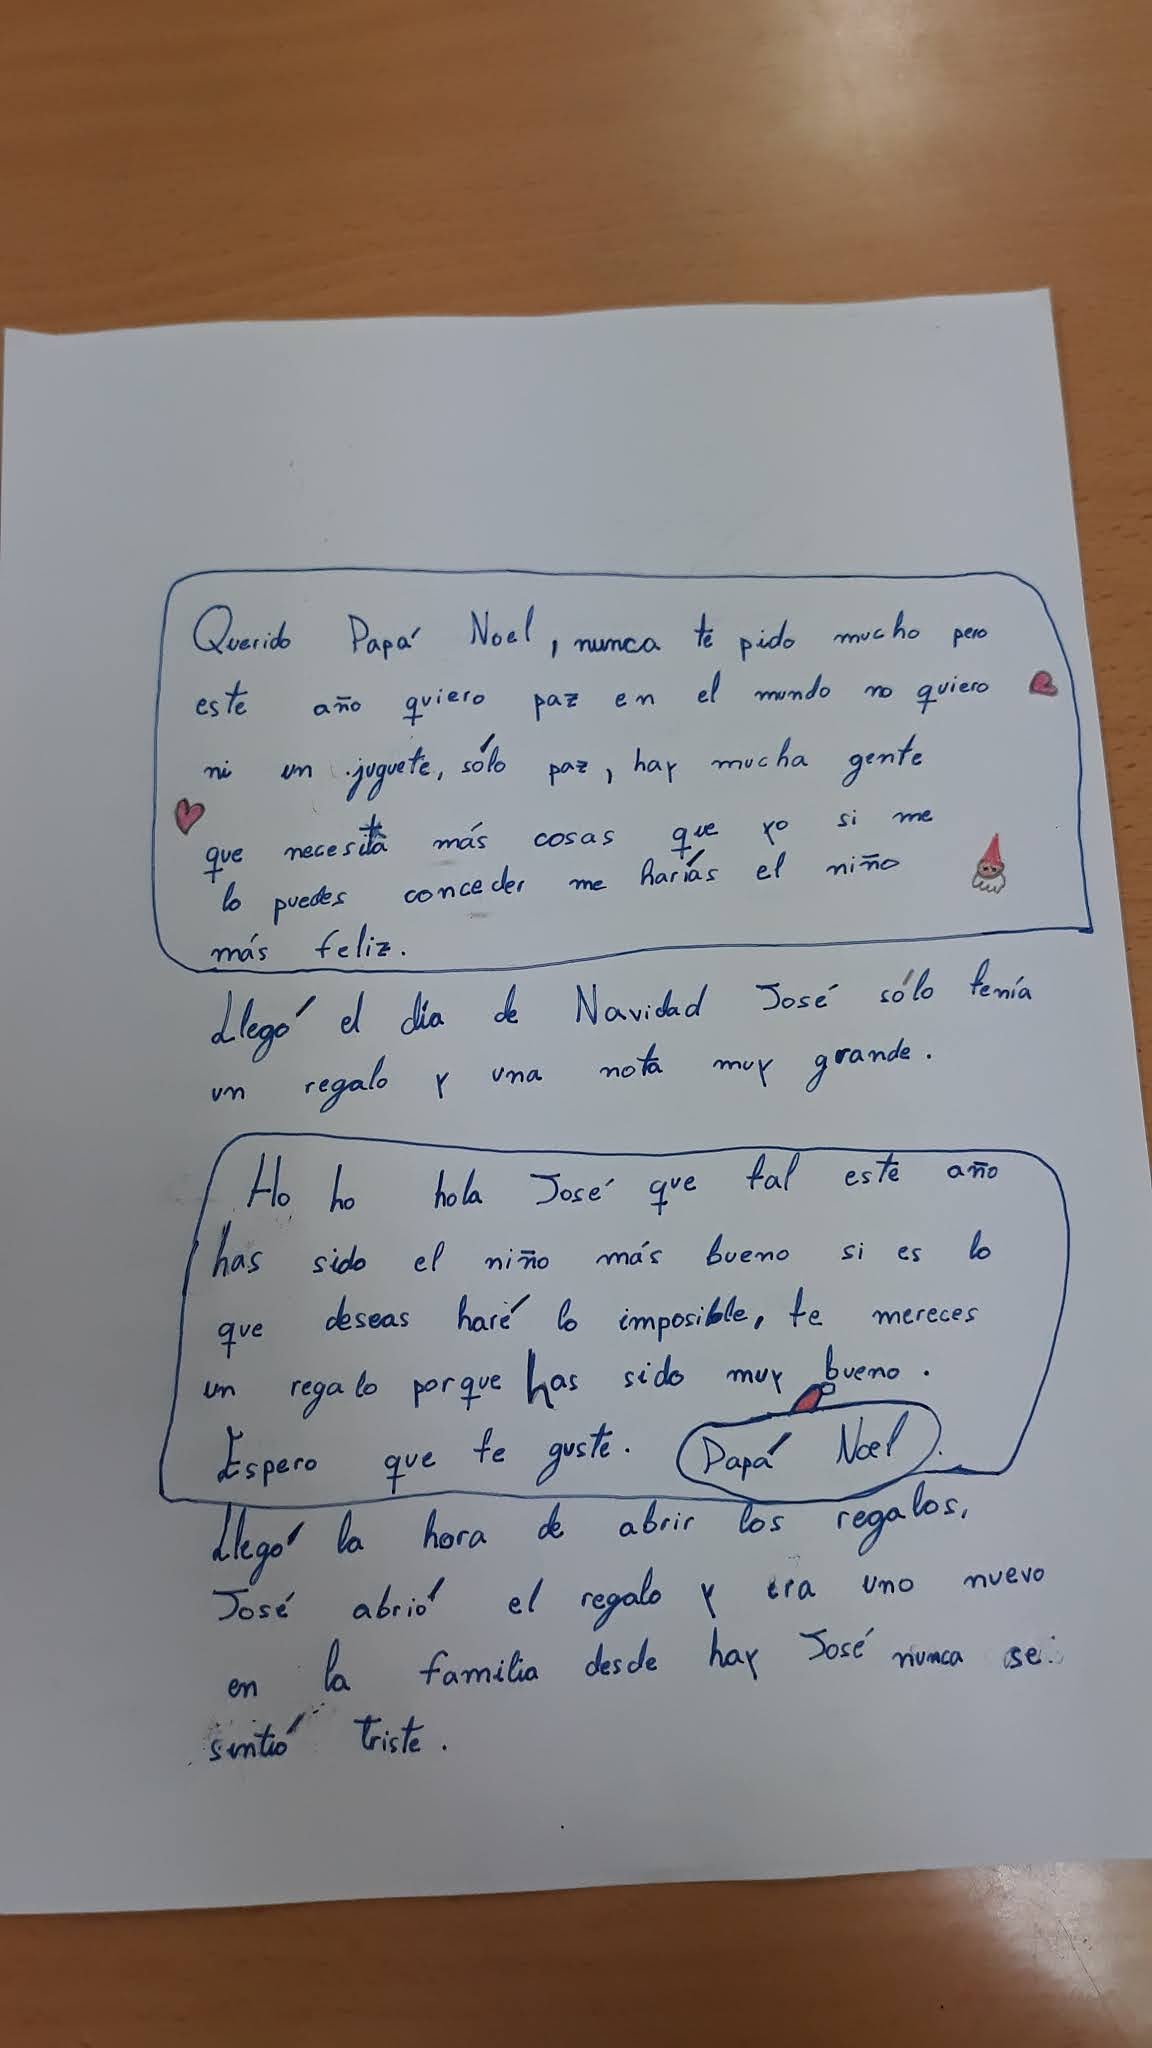 Querido Papá Noel, nunca te pido mucho pero
este año quiero paz en el mundo no quiero
ni un juguete, sólo paz, hay mucha gente
que necesita más cosas que yo si me
lo puedes conceder me harías el niño
más feliz.
Llegó el día de Navidad José sólo tenía
un regalo y una nota muy grande.
Ho ho hola José que tal este año
has sido el niño más bueno si es lo
que deseas haré lo imposible, te mereces
un regalo porque has sido muy bueno.
Espero que te guste. Papá Noel.
Llegó la hora de abrir los regalos,
José abrió el regalo y era uno nuevo
en la familia desde hay José nunca se
sintió triste.